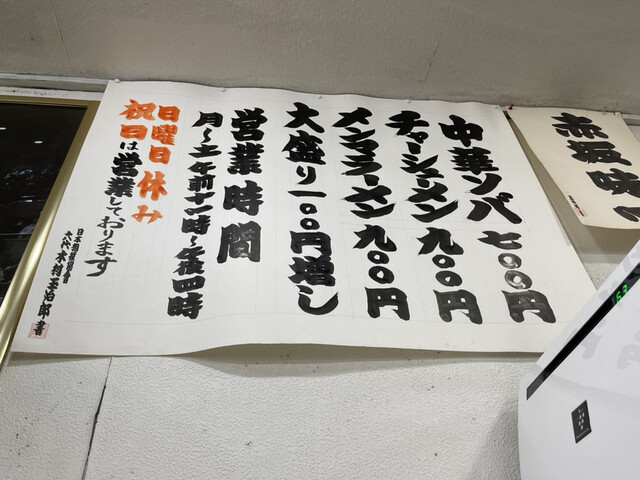 中華ソバ 七〇〇円
チャーシューメン 九〇〇円
メンマラーメン 九〇〇円
大盛り一〇〇円増し
営業時間
月〜土 午前十一時〜午後四時
日曜日休み
祝日は営業しております
日本相撲協会
六代 木村玉治郎書
赤坂味